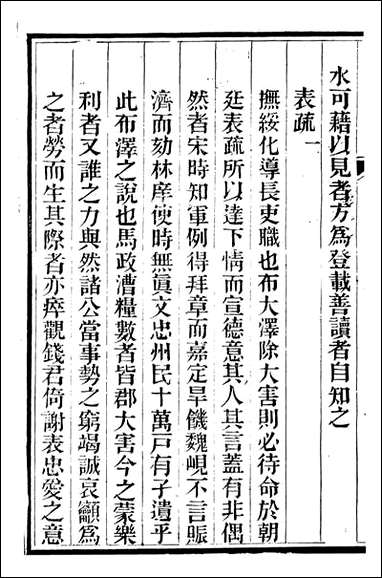 水可藉以見者方為登載善讀者自知之
表疏一
撫綏化導長吏職也布大澤除大害則必待命於朝
廷表疏所以達下情而宣德意其人其言蓋有非偶
然者宋時知軍例得拜章而嘉定旱饑魏峴不言賑
濟而劾林庠使時無眞文忠州民十萬戸有子遺乎
此布澤之說也馬政漕糧數者皆郡大害今之蒙樂
利者又誰之力與然諸公當事勢之窮竭誠哀籲為
之者勞而生其際者亦瘁觀錢君倚謝表忠愛之意